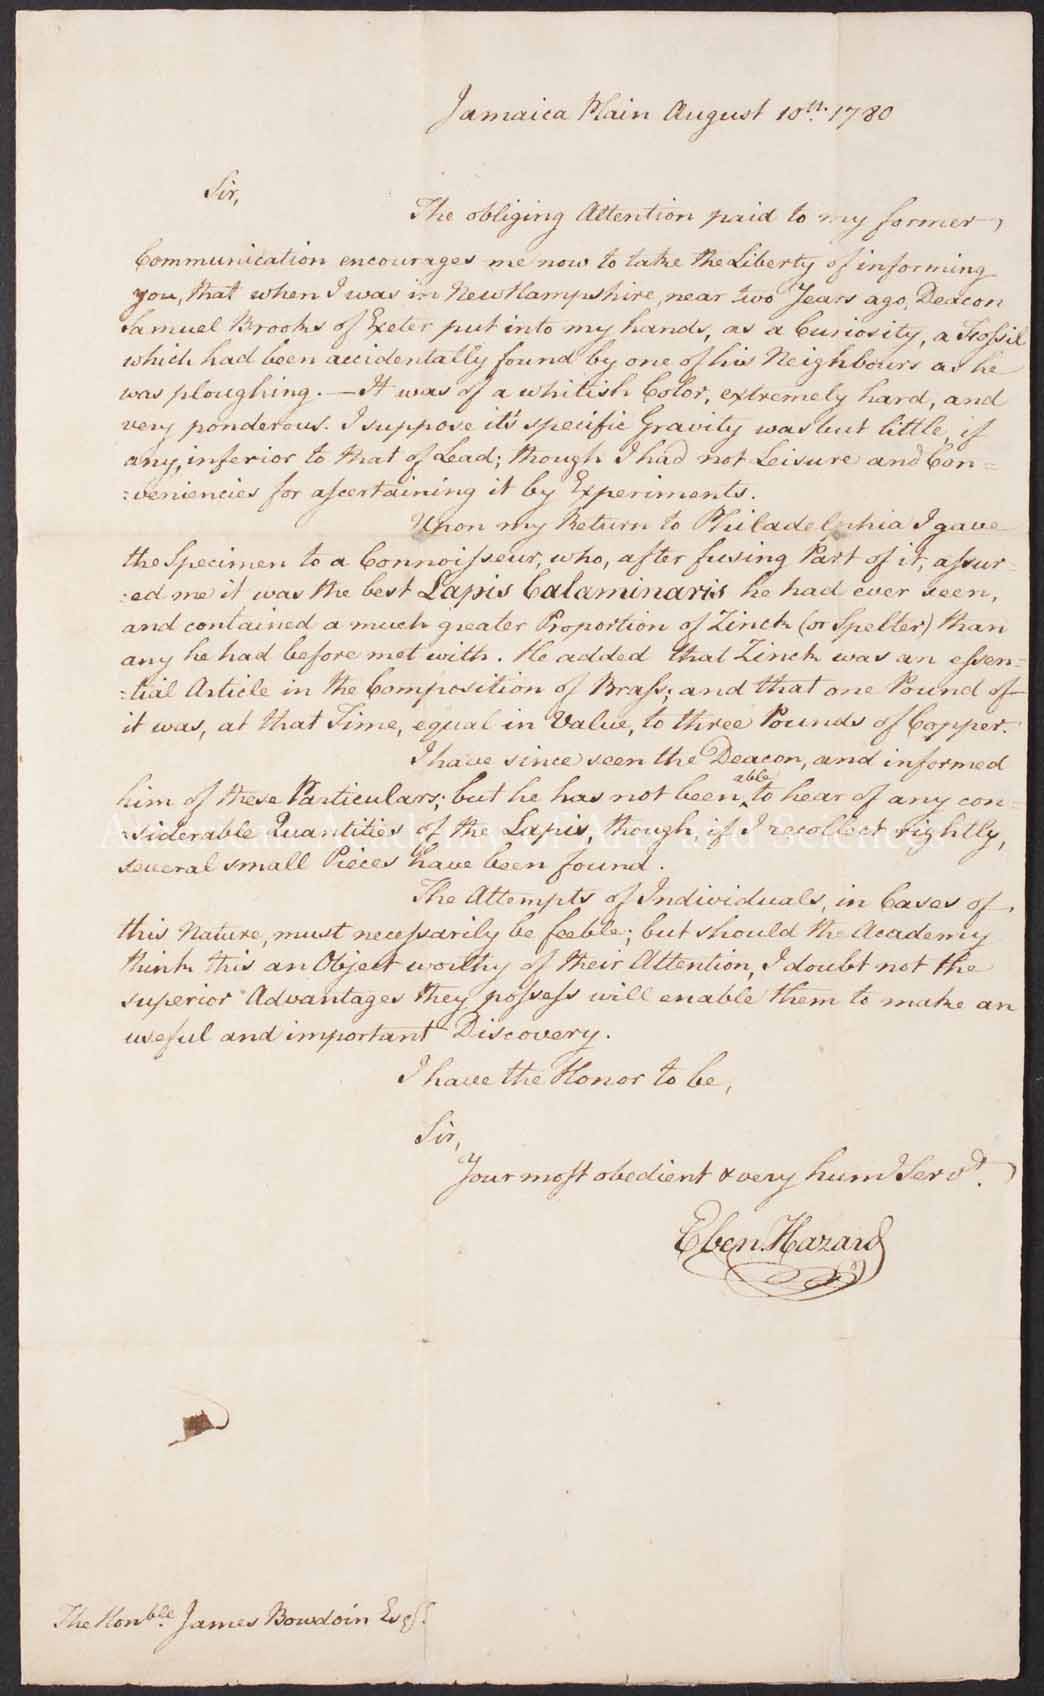 Jamaica Plain August 10th. 1780
Sir,
The obliging Attention paid to my former
Communication encourages me now to take the Liberty of informing
you, that when I was in New Hampshire, near two Years ago, Deacon
Samuel Brooks of Exeter put into my hands, as a Curiosity, a Fossil
which had been accidentally found by one of his Neighbours as he
was ploughing. — It was of a whitish Color, extremely hard, and
very ponderous. I suppose it's specific Gravity was but little, if
any, inferior to that of Lead; though I had not Leisure and Con=
=veniencies for ascertaining it by Experiments.
Upon my Return to Philadelphia I gave
the Specimen to a Connoisseur, who, after fusing Part of it, assur=
=ed me it was the best Lapis Calaminaris he had ever seen,
and contained a much greater Proportion of Zinck (or Spelter) than
any he had before met with. He added that Zinck was an essen=
=tial Article in the Composition of Brass; and that one Pound of
it was, at that Time, equal in Value, to three Pounds of Copper.
I have since seen the Deacon, and informed
him of these Particulars; but he has not been able to hear of any con=
=siderable Quantities of the Lapis, though, if I recollect rightly,
several small Pieces have been found.
The Attempts of Individuals, in Cases of
this Nature, must necessarily be feeble; but should the Academy
think this an Object worthy of their Attention, I doubt not the
superior Advantages they possess will enable them to make an
useful and important Discovery.
I have the Honor to be,
Sir,
Your most obedient & very hum. Servt.
Eben. Hazard
The Honble. James Bowdoin Esqr.
American Academy of Arts and Sciences